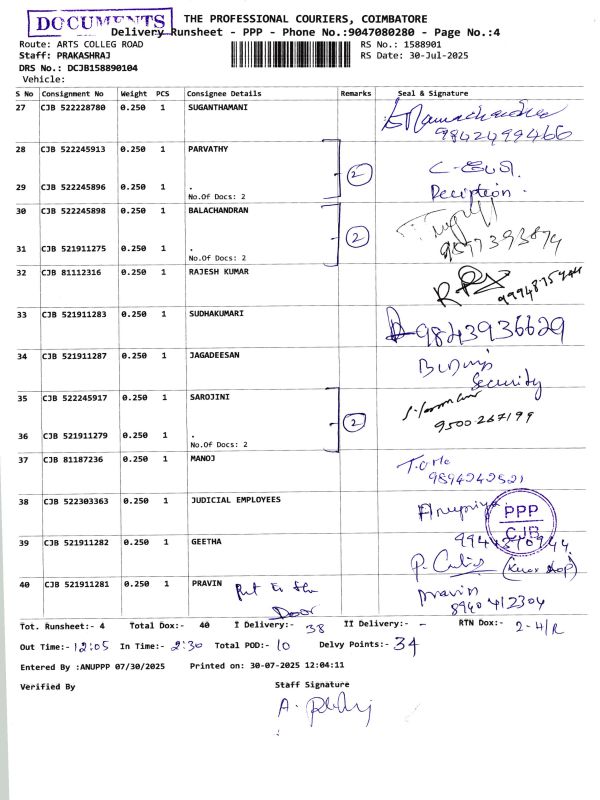 DOCUMENTS
THE PROFESSIONAL COURIERS, COIMBATORE
Delivery Runsheet - PPP - Phone No.:9047080280 - Page No.:4
Route: ARTS COLLEG ROAD RS No.: 1588901
Staff: PRAKASHRAJ RS Date: 30-Jul-2025
DRS No.: DCJB158890104
Vehicle:
S No Consignment No Weight PCS Consignee Details Remarks Seal & Signature
27 CJB 522228780 0.250 1 SUGANTHAMANI
9842499466
28 CJB 522245913 0.250 1 PARVATHY
2
29 CJB 522245896 0.250 1 . Reciption.
No.Of Docs: 2
30 CJB 522245898 0.250 1 BALACHANDRAN
2
31 CJB 521911275 0.250 1 . 9877393874
No.Of Docs: 2
32 CJB 81112316 0.250 1 RAJESH KUMAR
33 CJB 521911283 0.250 1 SUDHAKUMARI 9843936629
34 CJB 521911287 0.250 1 JAGADEESAN
Security
35 CJB 522245917 0.250 1 SAROJINI
2 9500267199
36 CJB 521911279 0.250 1 .
No.Of Docs: 2
37 CJB 81187236 0.250 1 MANOJ
9894242521
38 CJB 522303363 0.250 1 JUDICIAL EMPLOYEES Anupriya
PPP
CJB
39 CJB 521911282 0.250 1 GEETHA
(Xerox shop)
40 CJB 521911281 0.250 1 PRAVIN Put to the Pravin
Door 8940412304
Tot. Runsheet:- 4 Total Dox:- 40 I Delivery:- 38 II Delivery:- - RTN Dox:- 2-4/R
Out Time:- 12:05 In Time:- 2:30 Total POD:- 10 Delvy Points:- 34
Entered By :ANUPPP 07/30/2025 Printed on: 30-07-2025 12:04:11
Verified By Staff Signature